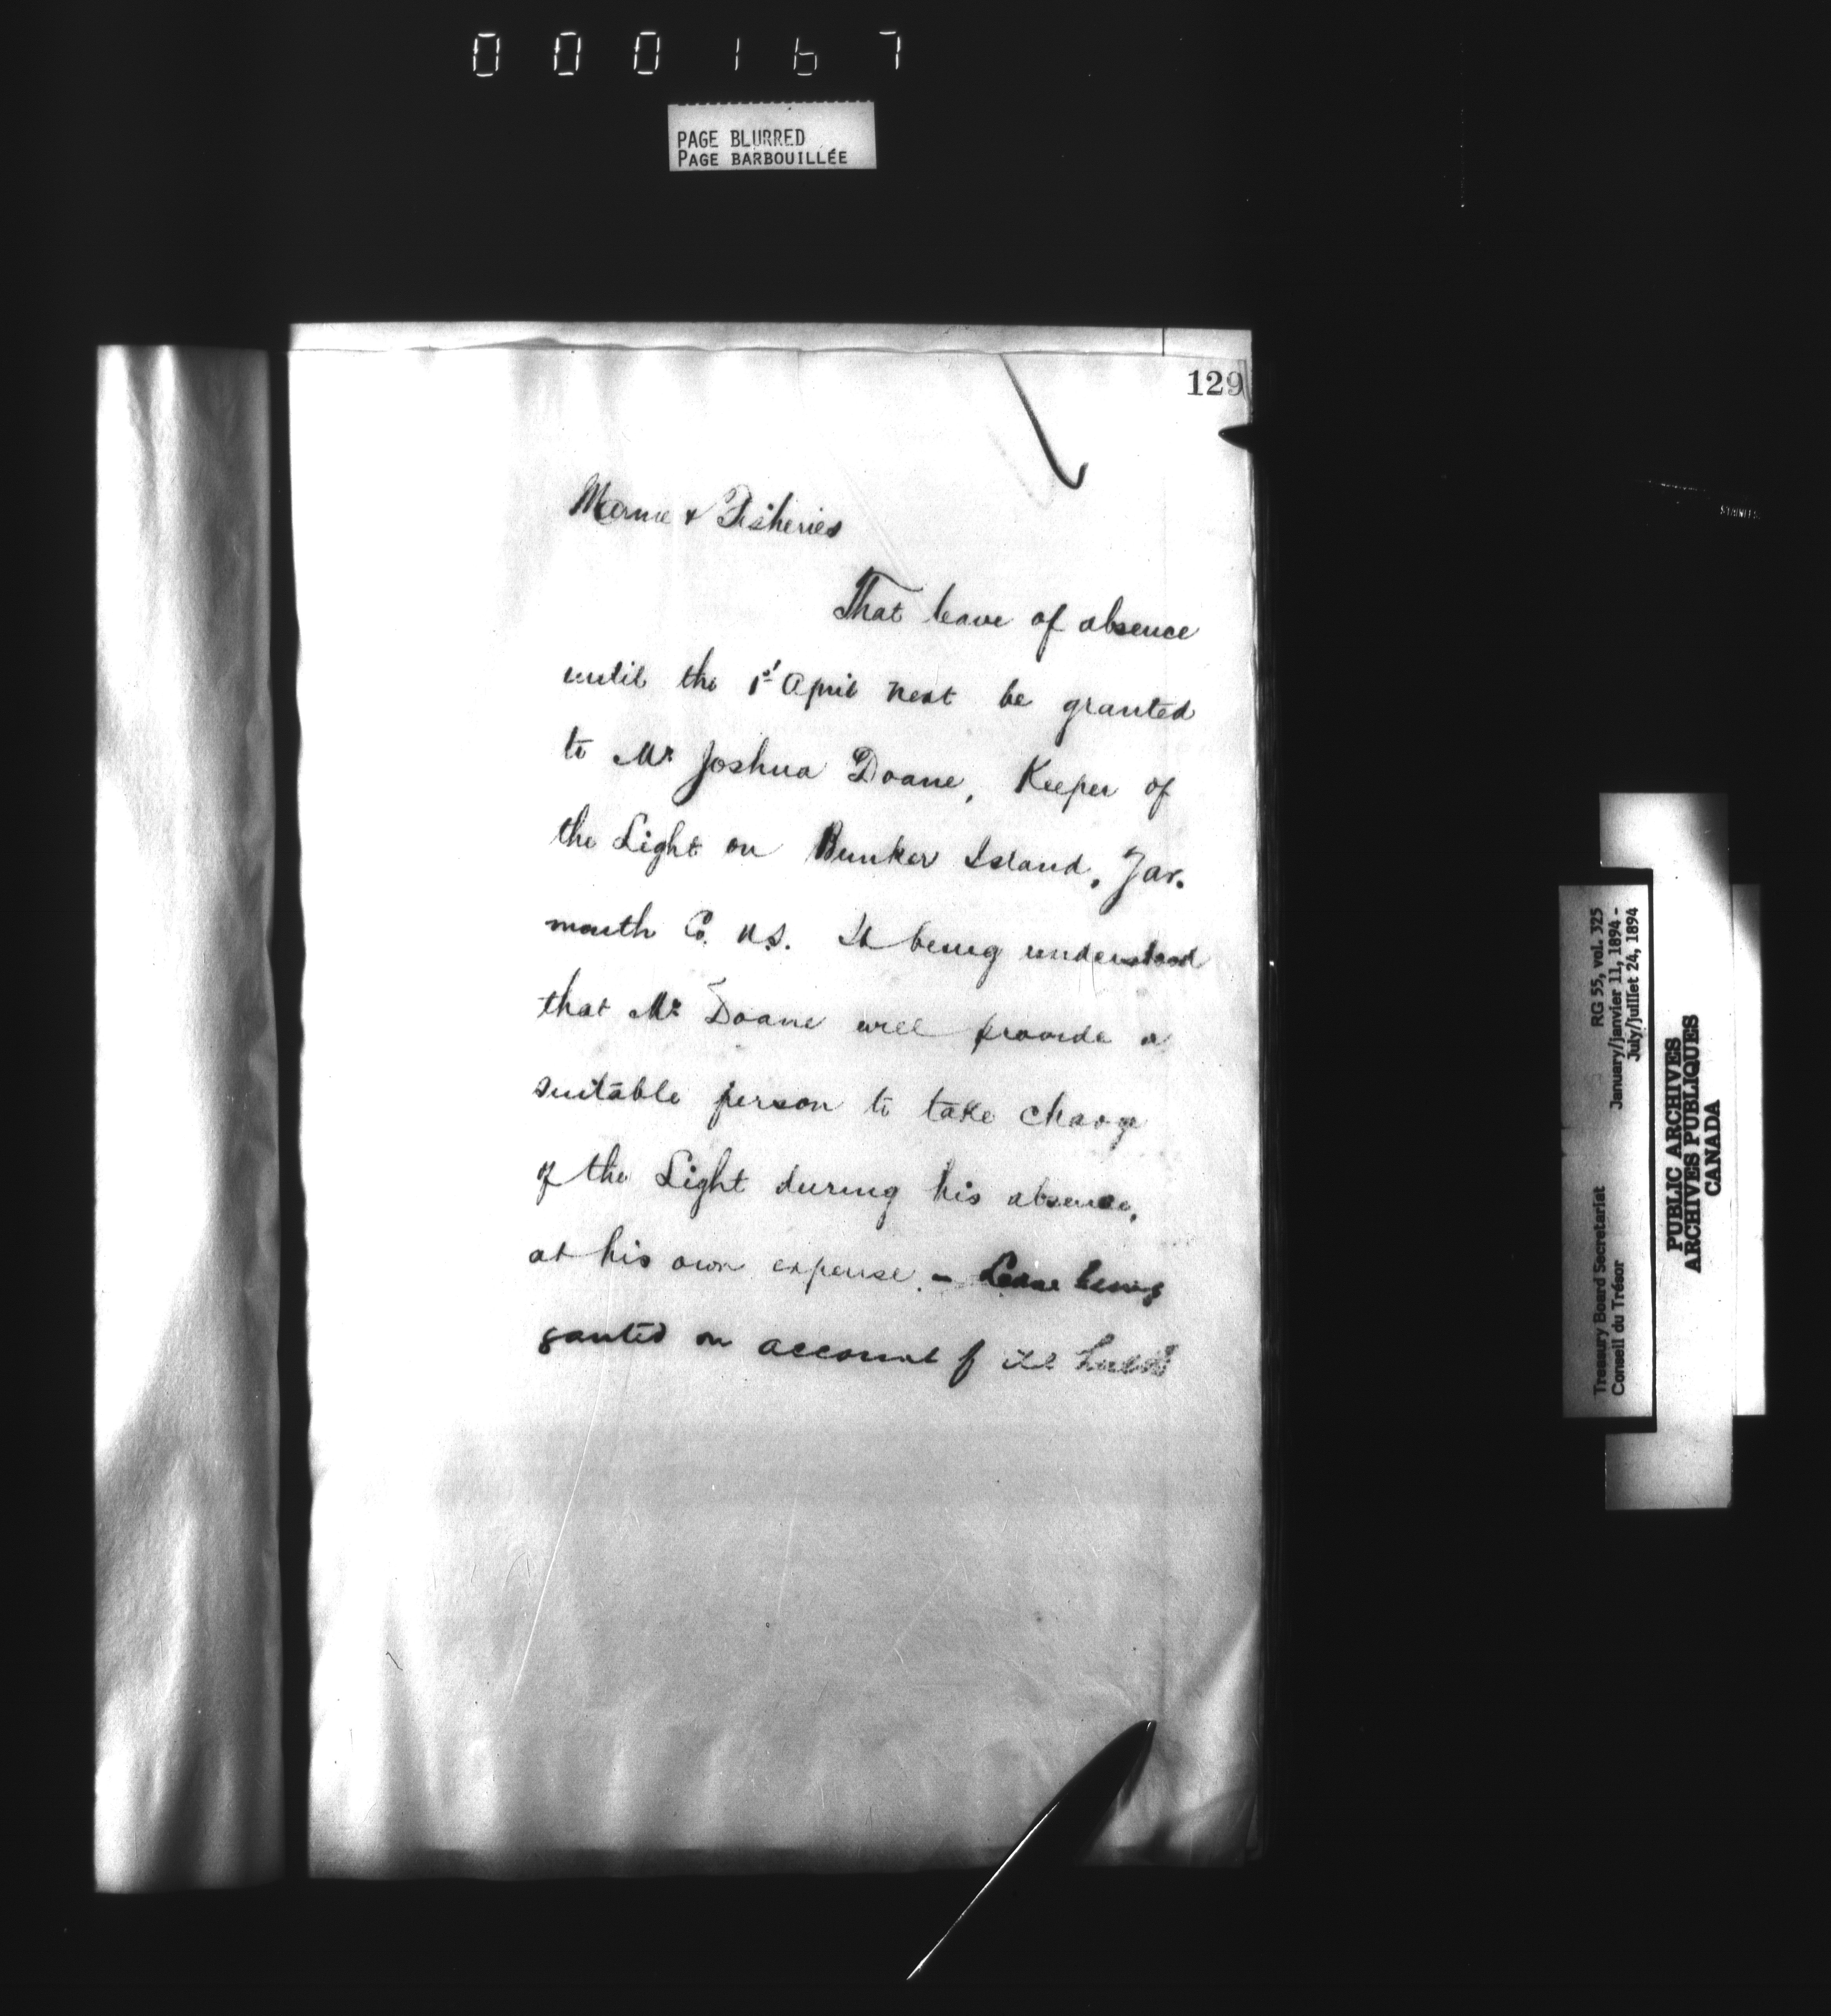 000167
PAGE BLURRED
PAGE BARBOUILLÉE
129
Marine & Fisheries
That leave of absence
until the 1st April next be granted
to Mr Joshua Doane, Keeper of
the Light on Bunker Island, Yar-
mouth Co. N.S. It being understood
that Mr Doane will provide a
suitable person to take charge
of the Light during his absence,
at his own expense. - Leave being
granted on account of ill health
RG 55, vol. 325
January/janvier 11, 1894 -
July/juillet 24, 1894
Treasury Board Secretariat
Conseil du Trésor
PUBLIC ARCHIVES
ARCHIVES PUBLIQUES
CANADA